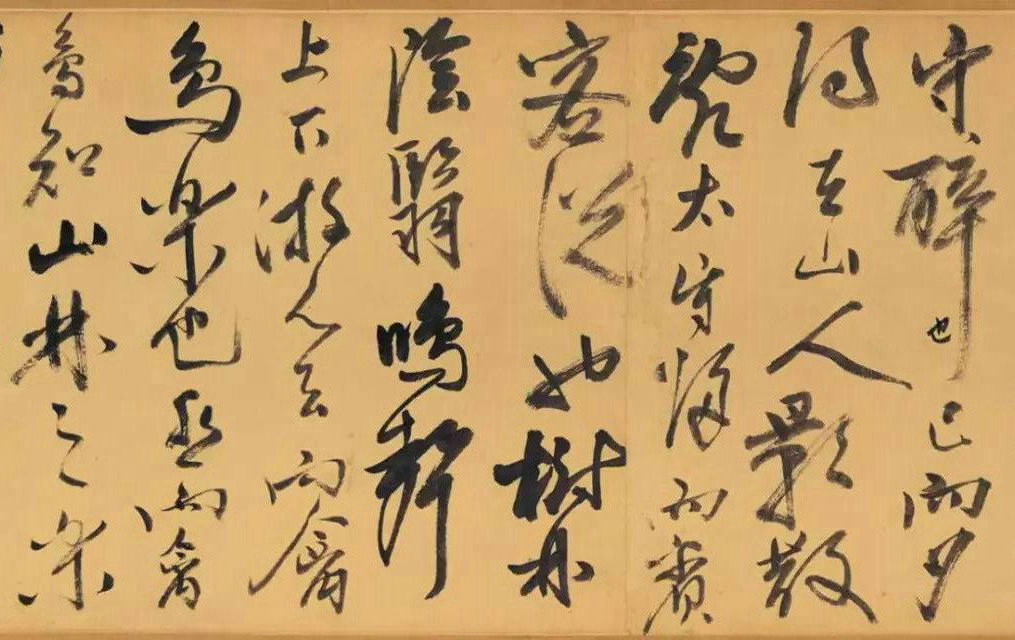 守醉也已而夕
陽在山人影散
亂太守歸而賓
客從也樹林
陰翳鳴聲
上下游人去而禽
鳥樂也然而禽
鳥知山林之樂